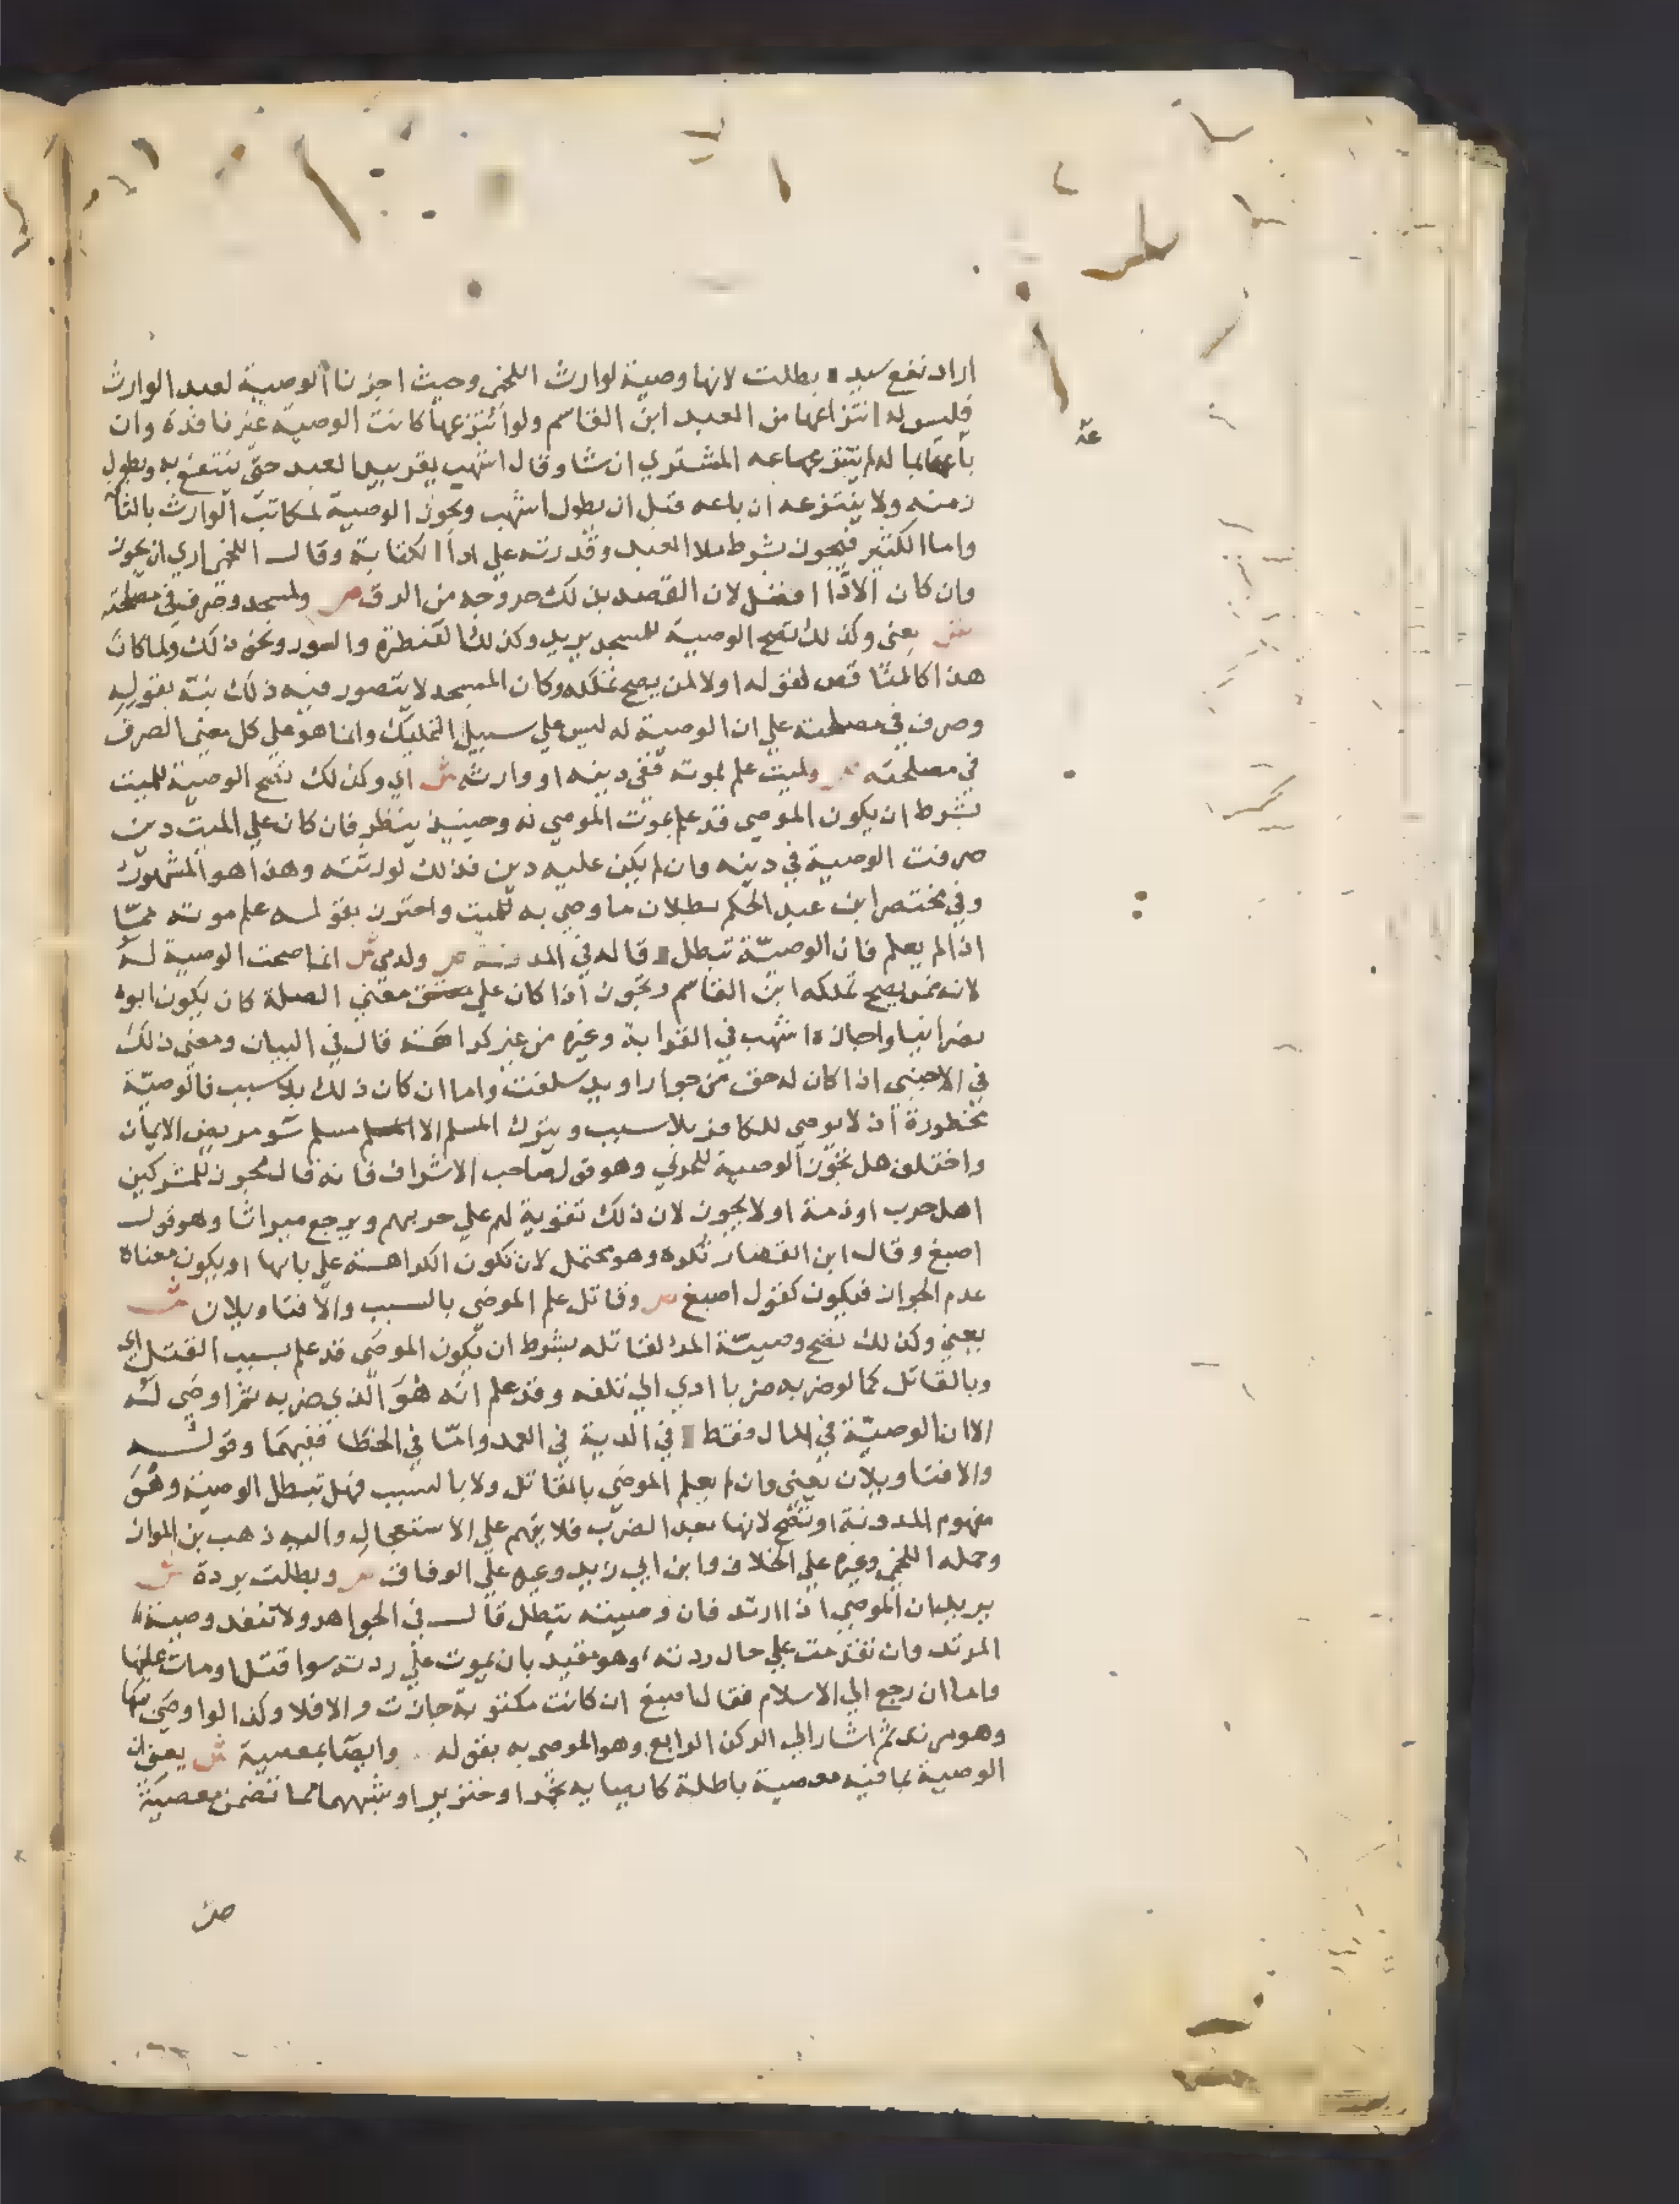 اراد نفع سيده بطلت لانها وصية لوارث اللخمي وحيث اجزنا الوصية لعبد الوارث
فليس له انتزاعها من العبد ابن القاسم ولو انتزعها كانت الوصية غير نافذة وان
باعه لم ينتزعها عه المشتري ان شا وقال اشهب يقر بيد العبد حتى ينتفع به ويطول
زمنه ولا ينتزعه ان باعه قبل ان يطول اشهب وتجوز الوصية لمكاتب الوارث بالتافه
عه
واما الكثير فيجوز بشرط ملا العبد وقدرته على ادا الكتابة وقال اللخمي اري ان يجوز
وان كان الادا افضل لان القصد بذلك خروجه من الرق ص ولمسجد وصرف في مصلحته
ش يعني وكذلك تصح الوصية للمسجد يريد وكذلك القنطرة والسور ونحو ذلك ولما كان
هذا كالمناقض لقوله اولا لمن يصح تملكه وكان المسجد لا يتصور فيه ذلك نبه بقوله
وصرف في مصلحته على ان الوصية له ليس علي سبيل التمليك وانما هو علي كل معني الصرف
في مصلحته ص ولميت علم بموته ففي دينه او وارثه ش اي وكذلك تصح الوصية للميت
بشرط ان يكون الموصي قد علم بموت الموصي له وحينيذ ينظر فان كان علي الميت دين
صرفت الوصية في دينه وان لم يكن عليه دين فذلك لورثته وهذا هو المشهور
وفي مختصر ابن عبد الحكم بطلان ما وصي به للميت واحترز بقوله علم موته مما
اذا لم يعلم فان الوصية تبطل قاله في المدونة ص ولذمي ش انما صحت الوصية له
لانه ممن يصح تملكه ابن القاسم وتجوز اذا كان علي معني الصلة كان يكون ابوه
نصرانيا واجازه اشهب في القرابة وغيره من غير كراهة قال في البيان ومعني ذلك
في الاجنبي اذا كان له حق من جوار او يد سلفت واما ان كان ذلك بلا سبب فالوصية
محظورة اذ لا يوصي للكافر بلا سبب ويترك المسلم الا مسلم سو مريض الايمان
واختلف هل تجوز الوصية للحربي وهو قول صاحب الاشراف فانه قال تجوز للمشركين
اهل حرب او ذمة او لا يجوز لان ذلك تقوية لهم علي حربهم ويرجع ميراثا وهو قول
اصبغ وقال ابن القصار تكره وهو محتمل لان تكون الكراهة علي بابها او يكون معناه
عدم الجواز فيكون كقول اصبغ ص وقاتل علم الموصي بالسبب والا فتاويلان ش
يعني وكذلك تصح وصية المرء لقاتله بشرط ان يكون الموصي قد علم بسبب القتل اي
وبالقاتل كما لو ضربه ضربا ادي الي تلفه وقد علم انه هو الذي ضربه ثم اوصي له
الا ان الوصية في المال فقط في الدية في العمد واما في الخطا ففيهما وقوله
والا فتاويلان يعني وان لم يعلم الموصي بالقاتل ولا بالسبب فهل تبطل الوصية وهو
مفهوم المدونة او تصح لانها بعد الضرب فلا يتهم علي الاستعجال واليه ذهب بن المواز
وحمله اللخمي وغيره علي الخلاف وابن ابي زيد وغيره علي الوفاق ص وبطلت بردة ش
يريد ان الموصي اذا ارتد فان وصيته تبطل قال في الجواهر ولا تنفذ وصية
المرتد وان تقدمت علي حال ردته وهو مقيد بان يموت علي ردته سوا قتل او مات عليها
واما ان رجع الي الاسلام فقال اصبغ ان كانت مكتوبة جازت والا فلا وكذا لو اوصي بها
وهو مرتد ثم اشار الي الركن الرابع وهو الموصي به بقوله وايصا بمعصية ش يعني ان
الوصية بما فيه معصية باطلة كايصايه بخمر او خنزير او شبههما مما تضمن معصية